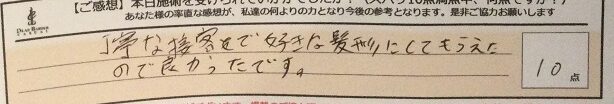 【ご感想】本日施術を受けられていかがでしたか?(ズバリ10点満点中、何点ですか?)
あなた様の率直な感想が、私達の何よりの力となり今後の参考となります。是非ご協力お願いします
丁寧な接客をで好きな髪形にしてもらえた
ので良かったです。
10点